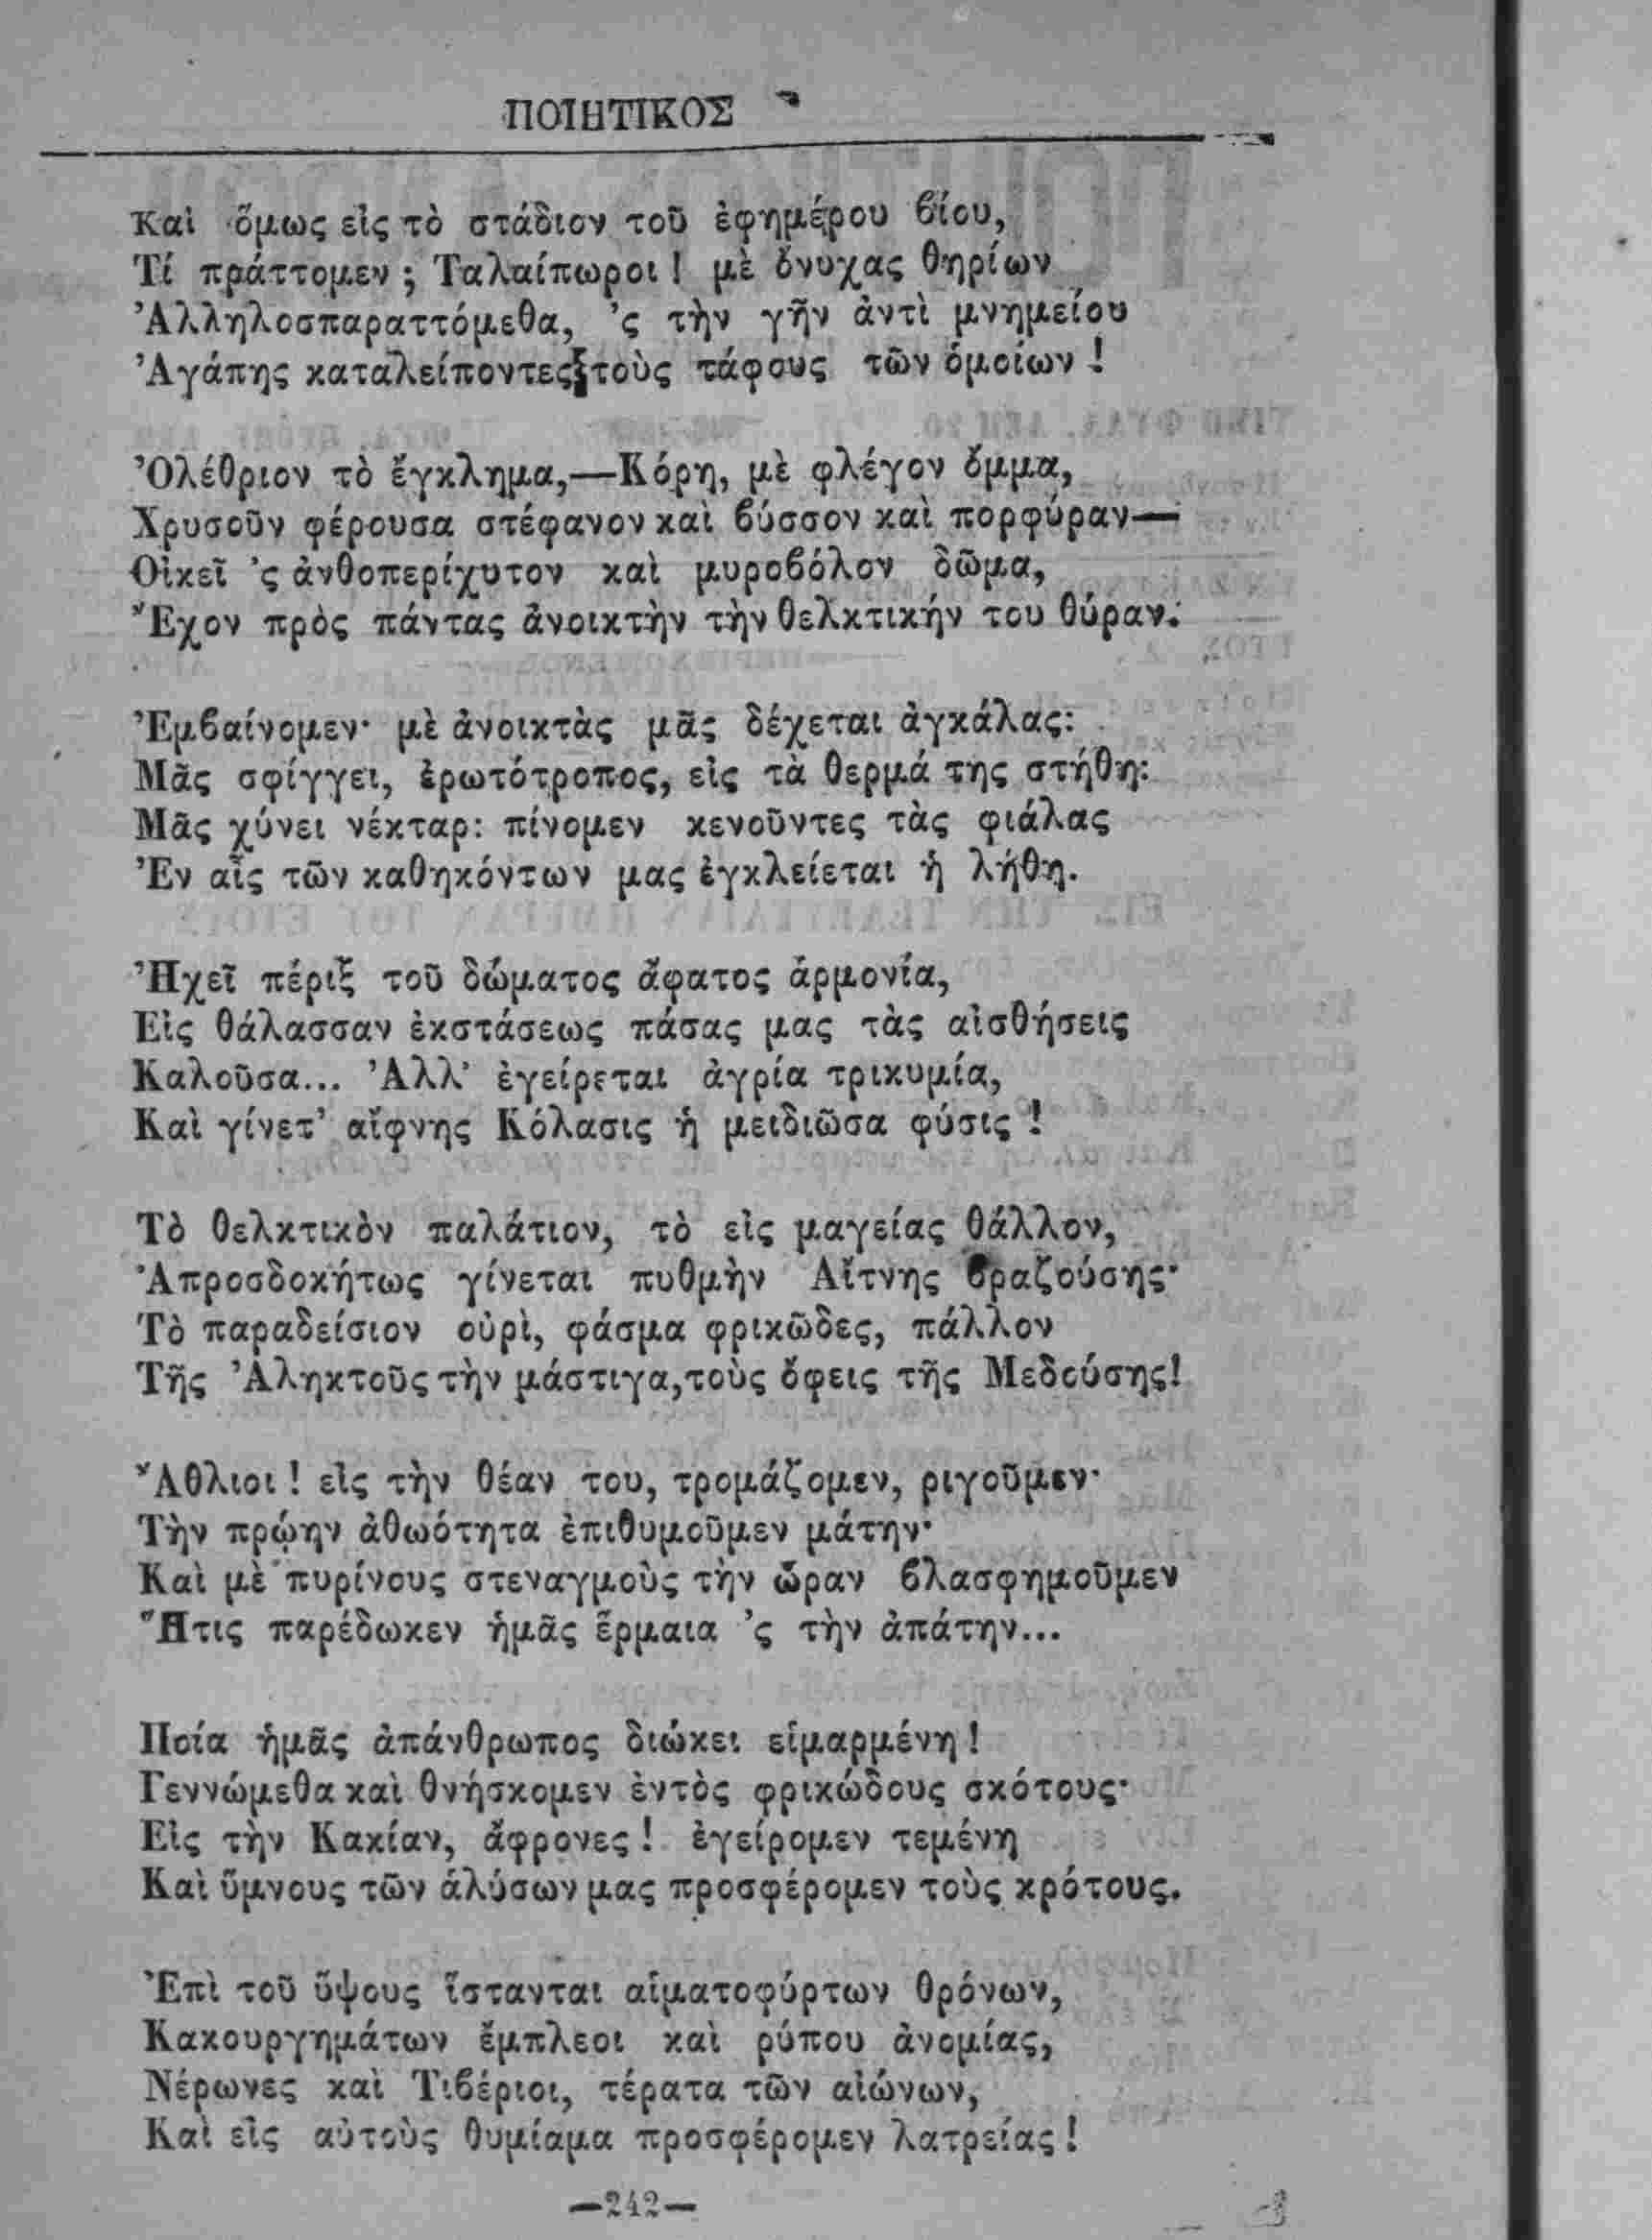 ΠΟΙΗΤΙΚΟΣ
Καὶ ὅμως εἰς τὸ στάδιον τοῦ ἐφημέρου βίου,
Τί πράττομεν ; Ταλαίπωροι ! μὲ ὄνυχας θηρίων
Ἀλληλοσπαραττόμεθα, 'ς τὴν γῆν ἀντὶ μνημείου
Ἀγάπης καταλείποντες τοὺς τάφους τῶν ὁμοίων !
Ὀλέθριον τὸ ἔγκλημα,—Κόρη, μὲ φλέγον ὄμμα,
Χρυσοῦν φέρουσα στέφανον καὶ βύσσον καὶ πορφύραν—
Οἰκεῖ 'ς ἀνθοπερίχυτον καὶ μυροβόλον δῶμα,
Ἔχον πρὸς πάντας ἀνοικτὴν τὴν θελκτικήν του θύραν.
Ἐμβαίνομεν· μὲ ἀνοικτὰς μᾶς δέχεται ἀγκάλας:
Μᾶς σφίγγει, ἐρωτότροπος, εἰς τὰ θερμά της στήθη:
Μᾶς χύνει νέκταρ: πίνομεν κενοῦντες τὰς φιάλας
Ἐν αἷς τῶν καθηκόντων μας ἐγκλείεται ἡ λήθη.
Ἠχεῖ πέριξ τοῦ δώματος ἄφατος ἁρμονία,
Εἰς θάλασσαν ἐκστάσεως πάσας μας τὰς αἰσθήσεις
Καλοῦσα... Ἀλλ' ἐγείρεται ἀγρία τρικυμία,
Καὶ γίνετ' αἴφνης Κόλασις ἡ μειδιῶσα φύσις !
Τὸ θελκτικὸν παλάτιον, τὸ εἰς μαγείας θάλλον,
Ἀπροσδοκήτως γίνεται πυθμὴν Αἴτνης βραζούσης·
Τὸ παραδείσιον οὐρὶ, φάσμα φρικῶδες, πάλλον
Τῆς Ἀληκτοῦς τὴν μάστιγα,τοὺς ὄφεις τῆς Μεδούσης!
Ἄθλιοι ! εἰς τὴν θέαν του, τρομάζομεν, ριγοῦμεν·
Τὴν πρώην ἀθωότητα ἐπιθυμοῦμεν μάτην·
Καὶ μὲ πυρίνους στεναγμοὺς τὴν ὥραν βλασφημοῦμεν
Ἥτις παρέδωκεν ἡμᾶς ἕρμαια 'ς τὴν ἀπάτην...
Ποία ἡμᾶς ἀπάνθρωπος διώκει εἱμαρμένη !
Γεννώμεθα καὶ θνήσκομεν ἐντὸς φρικώδους σκότους·
Εἰς τὴν Κακίαν, ἄφρονες ! ἐγείρομεν τεμένη
Καὶ ὕμνους τῶν ἁλύσων μας προσφέρομεν τοὺς κρότους.
Ἐπὶ τοῦ ὕψους ἵστανται αἱματοφύρτων θρόνων,
Κακουργημάτων ἔμπλεοι καὶ ρύπου ἀνομίας,
Νέρωνες καὶ Τιβέριοι, τέρατα τῶν αἰώνων,
Καὶ εἰς αὐτοὺς θυμίαμα προσφέρομεν λατρείας !
—242—